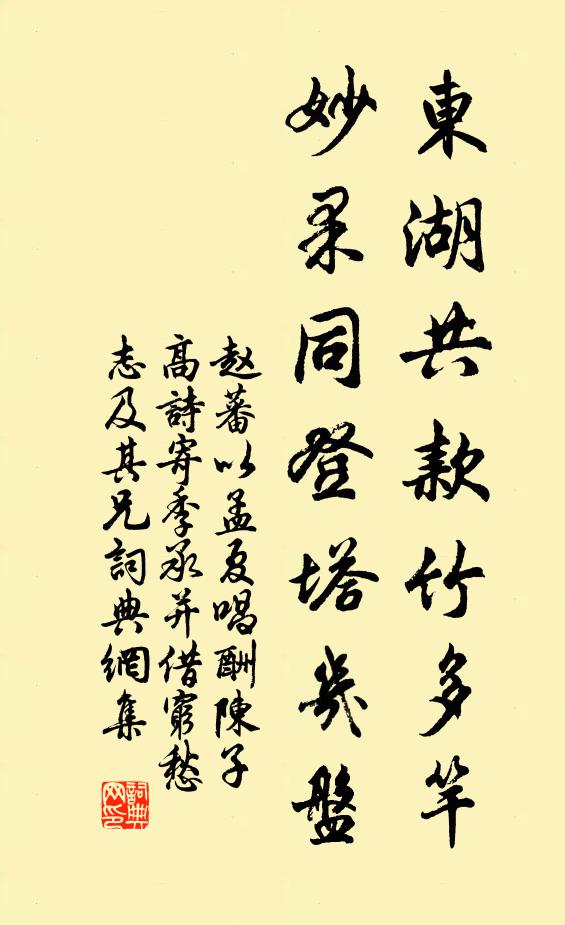 東湖共款竹多竿
妙果同登塔幾盤
赵蕃以孟夏唱酬陳子
高詩寄季承并借窮愁
志及其兄詞典網集
詞典
网印